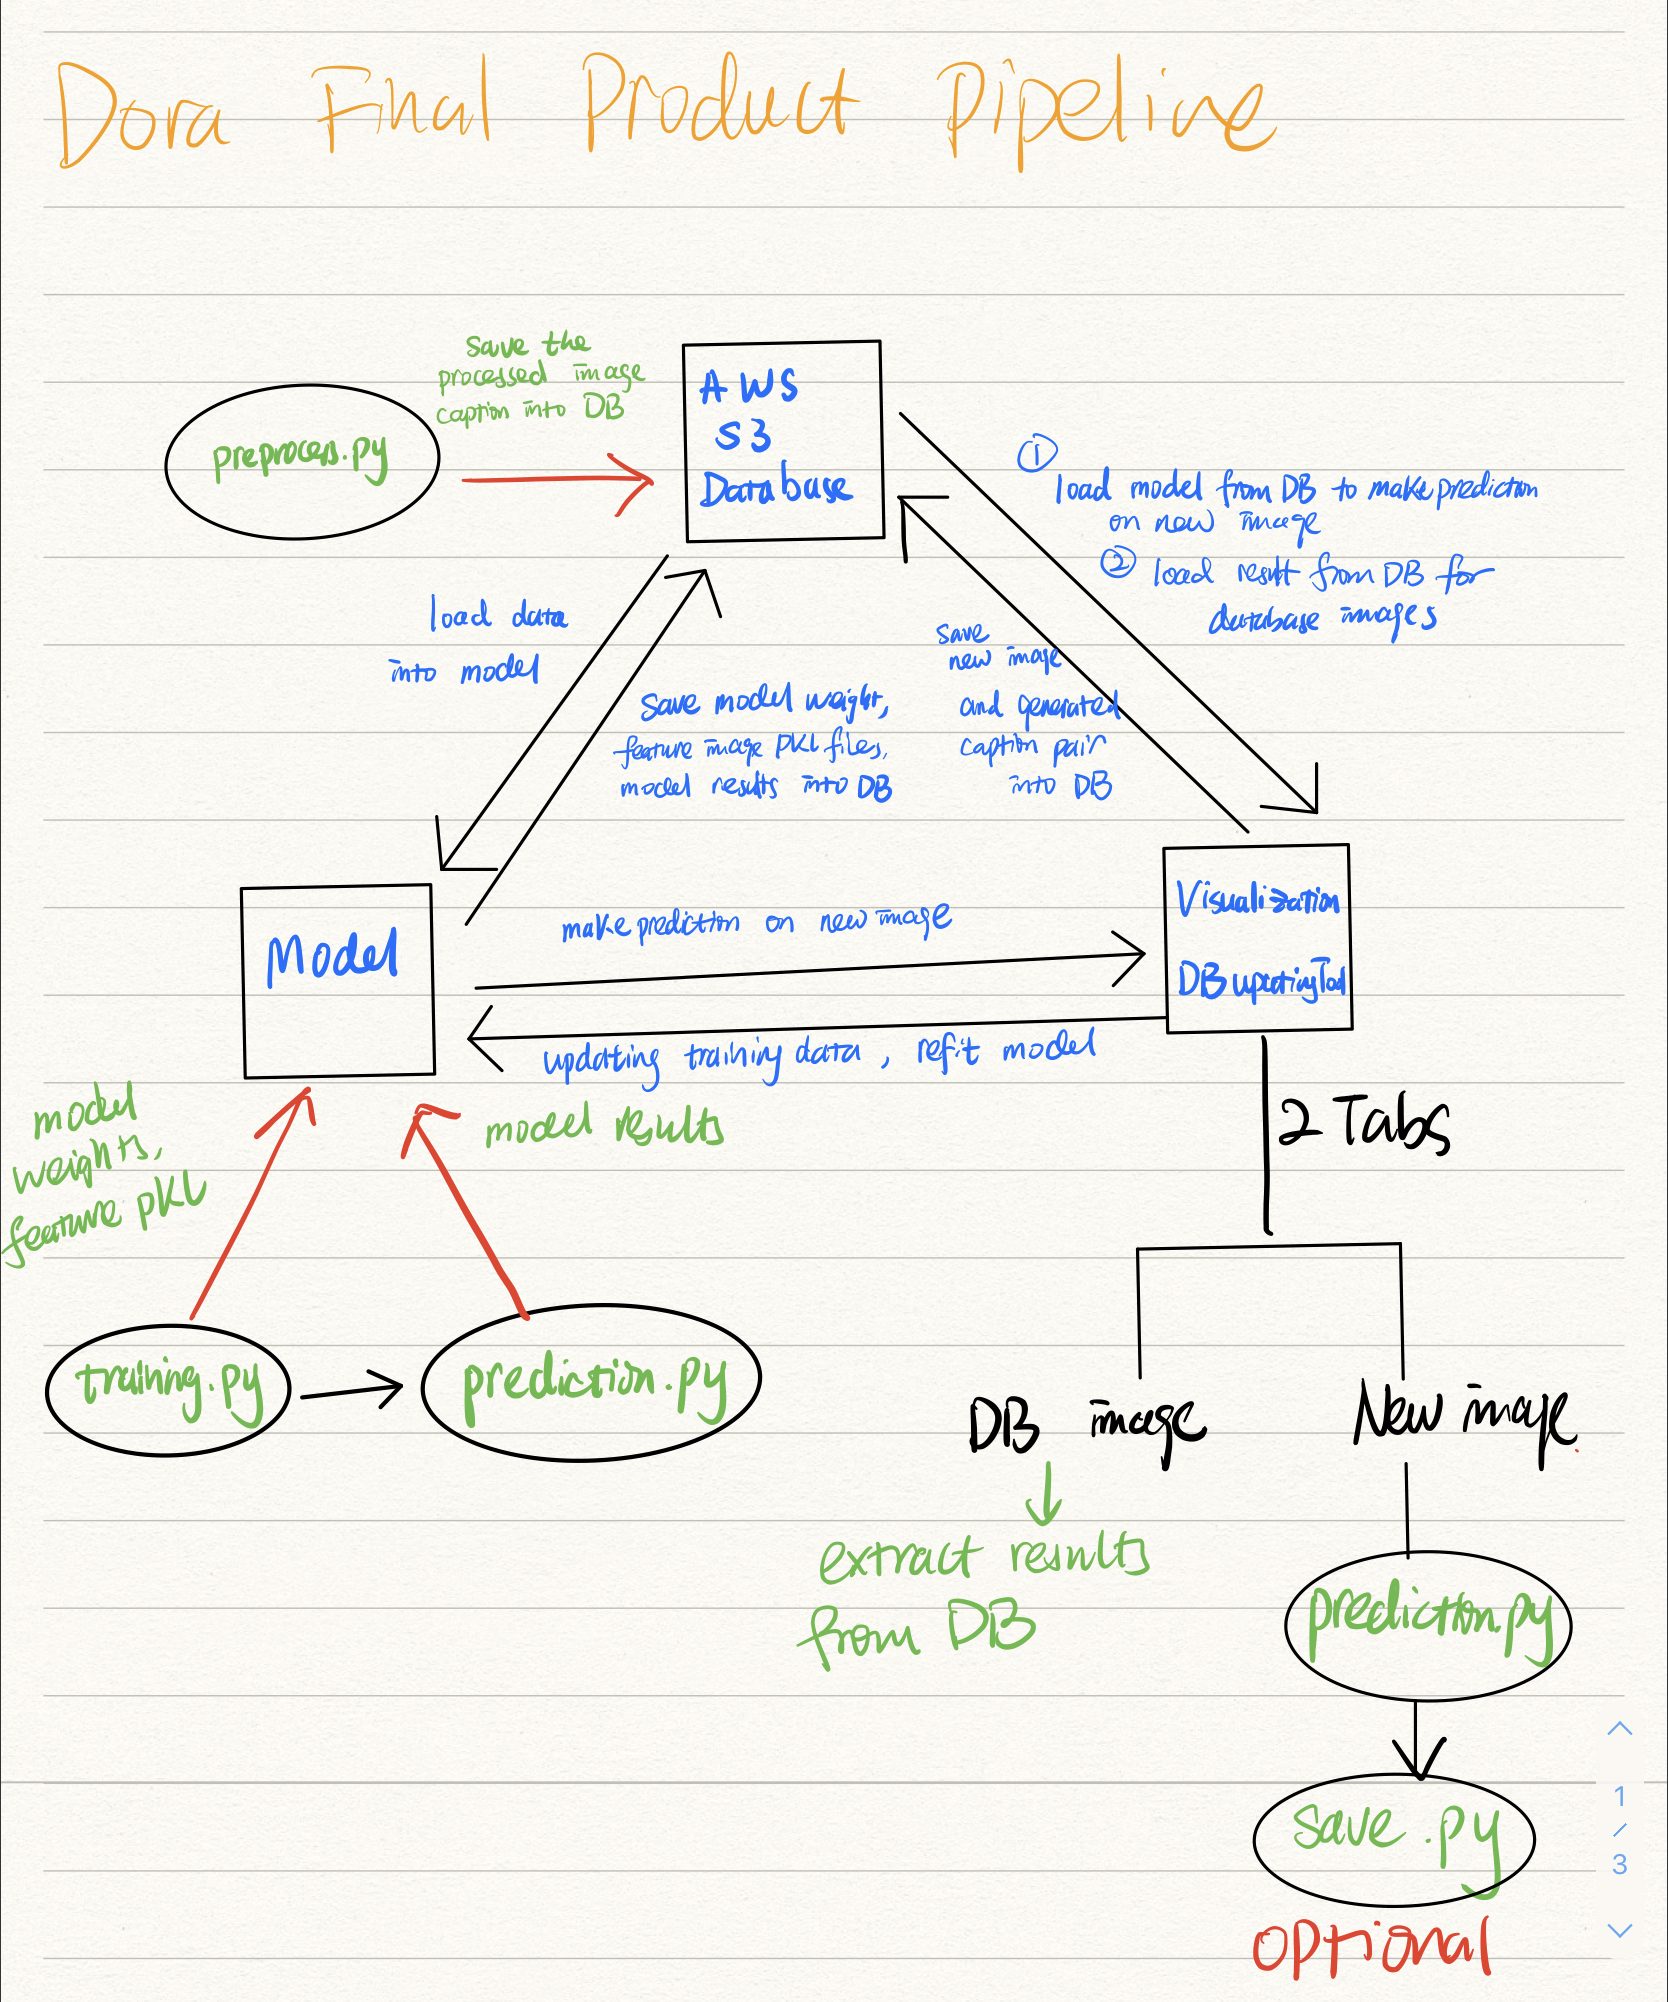 Dora Final Product Pipeline
save the
processed image
caption into DB
preprocess.py
AWS
S3
Database
①
load model from DB to make prediction
on new image
② load result from DB for
database images
load data
into model
save model weight,
feature image PKL files,
model results into DB
save
new image
and generated
caption pair
into DB
Model
make prediction on new image
Visualization
DB updating Tool
updating training data, refit model
model
weights,
feature pKL
model results
2 Tabs
training.py
prediction.py
DB image
New image
extract results
from DB
prediction.py
save.py
optional
1
/
3